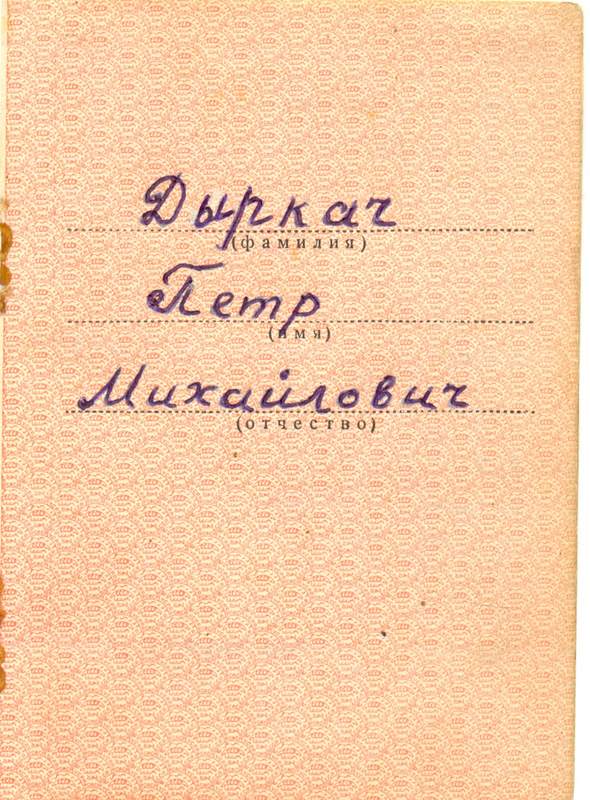 Дыркач
(фамилия)
Петр
(имя)
Михайлович
(отчество)